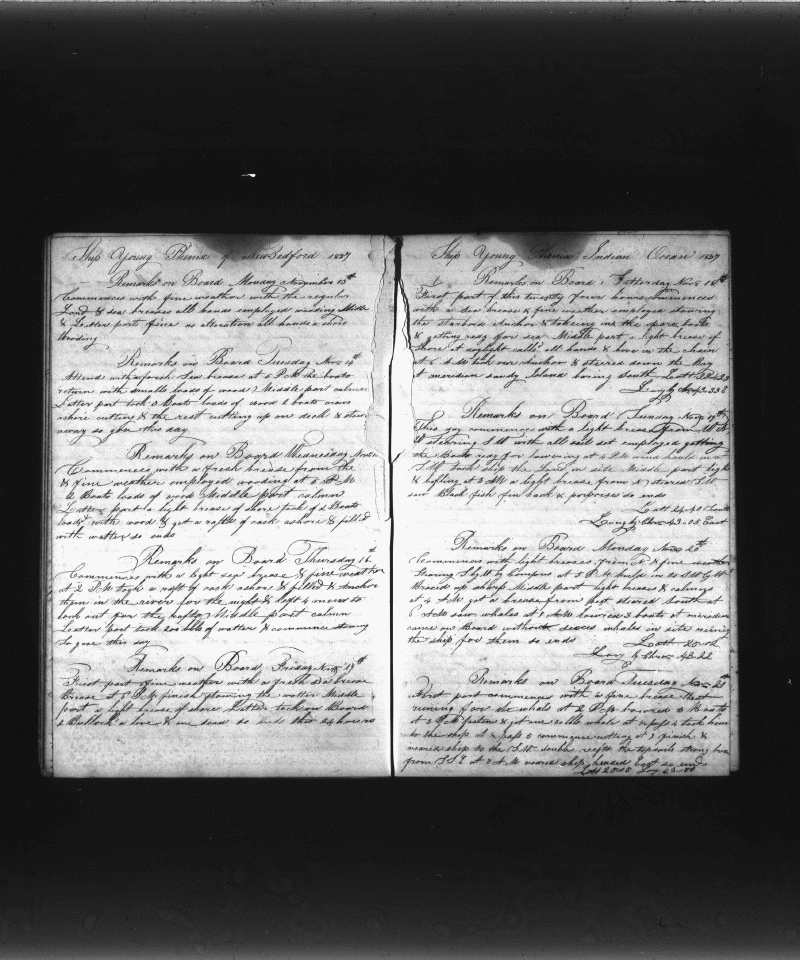 Ship Young Phenix of New Bedford 1837
Remarks on Board Monday November 13th
Commences with fine weather with the regular
Land & sea breases all hands employed wooding Middle
& Latter parts fine no alteration all hands a shore
Wooding
Remarks on Board Tuesday Nov 14th
Attends with a fresh Sea brease at 5 P.M the boats
return with smalls loads of wood Middle part calm
Latter part took 3 Boats loads of wood 2 boats crews
ashore cutting & the rest cutting up on deck &
away so goes this day
Remarks on Board Wednesday
Commences with a fresh brease from the
& fine weather employed wooding at 5 P.M
2 Boats loads of wood Middle part calm
Latter part a light brease of shore took of 2 Boats
loads with wood & got a raft of cask ashore & filled
with watter so ends
Remarks on Board Thursday 16th
Commences with a light sea brease & fine weather
at 2 P.M took a raft of cask ashore & filled & anchore
them in the river for the night & left 4 men to
look out for the rafts Middle part calm
Latter part took 200 bbls of watter & commence stowing
So goes this day
Remarks on Board Friday Nov 17th
First part fine weather with a fresh Sea brease
Brease at 6 P.M finish stowing the watter Middle
part a light brease of shore Latter took on Board
2 Bullock a live & one dead so ends this 24 hours
Ship Young Phenix Indian Ocean 1837
Remarks on Board Satterday Nov 18th
First part of this twenty fours hours commences
with a sea brease & fine weather employed stowing
the starbord Anchor & takeing in the spare boats
& getting redy for sea Middle part light breas of
shore at daylight calld all hands & hove in the chain
at 6 A.M took our Anchor & steered out the Bay
at meridian sandy Island boring South Latt
Long by Chr 43.33 E
Remarks on Board Sunday Nov 19th
This day commences with a light brease from
steering S.W with all sail set employed getting
the Boats redy for lowering at 6 P.M wind hauld in at
S.W tack ship the Land in site Middle part light
& bafling at 3 A.M a light brease from N stered S.W
saw Black fish fin back & porpoises so ends
Latt 24.40 South
Long by Chro 43.05 East
Remarks on Board Monday Nov 20th
Commences with light breases from N & fine weather
Stearing S by W by Compass at 5 P.M huld in to S.W by W
Braced up sharp Middle part light breases & calmes
at 4 A.M got a brease from stered South at
A.M saw whales at 7 A.M lowered 3 boats at meridian
came on Board without sucess whales in site runing
the ship for them so ends Latt 25.02
Long by Chro 43.22
Remarks on Board Tuesday Nov 21st
First part commences with a fine brease
runing for the whals at 2 P.M lowered 3 Boats
at 3 P.M fastend & got one 50 bbls whale at ½ past 4 took him
to the ship at ½ past 5 commence cutting at 7 finish &
weared ship to the S.W. double reeft the topsails strong
from S.S.E at 2 A.M weared ship headed East so ends
Latt 25.05 Long 43